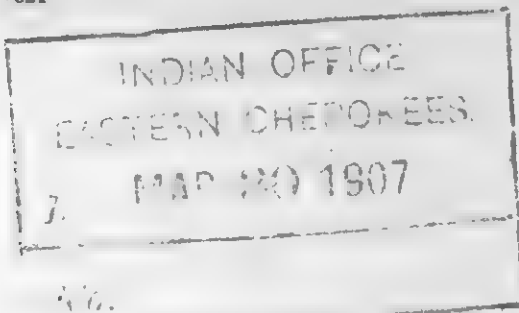 INDIAN OFFICE
EASTERN CHEROKEES.
MAR 20 1907
7.
No.